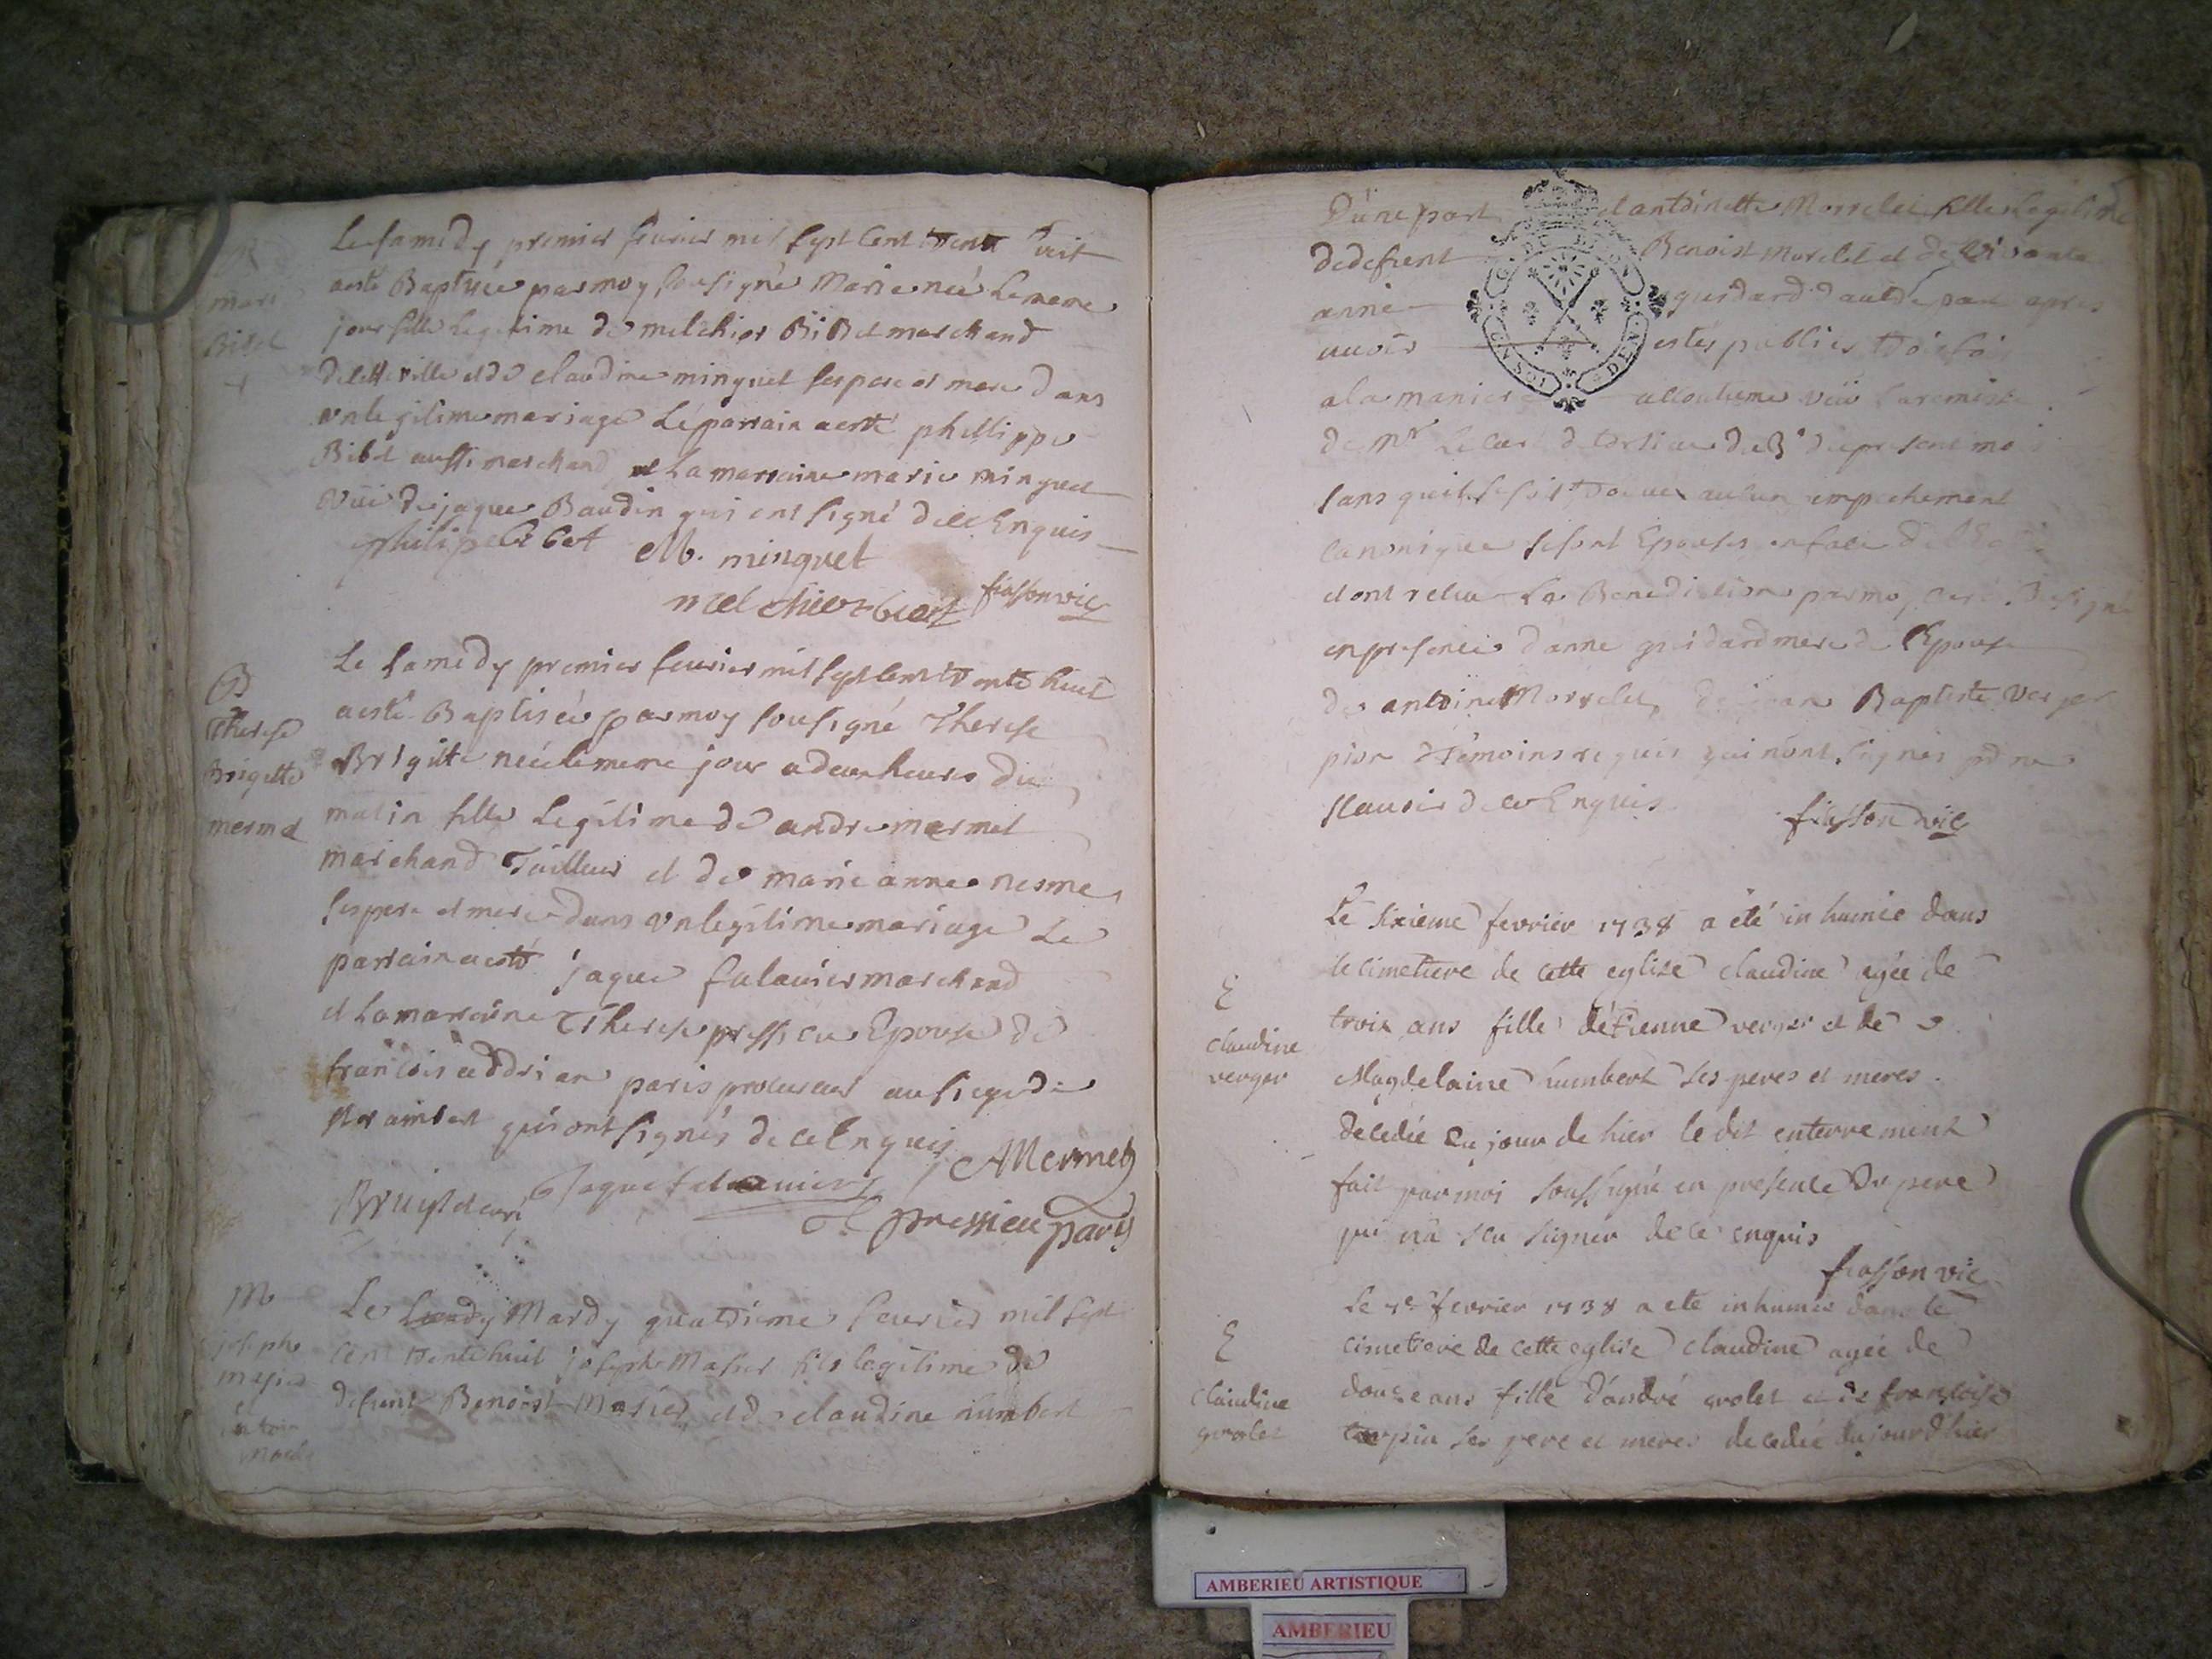 B
marie
Bibet
Le samedy premier fevrier mil sept Cent trente huit
a esté Baptisée par moy sousigné Marie née Le meme
jour fille Legitime de melchior Bibet marchand
de cette ville et de claudine minguet ses pere et mere dans
un legitime mariage Le parrain a esté phillippe
Bibet aussi marchand et La marraine marie minguet
de jaque Baudin qui ont signé de ce Enquis
philipe Bibet M. minguet
melchior bibet frasson vic
B
Therese
Brigitte
mermet
Le samedy premier feurier mil sept cent trente huit
a esté Baptisée par moy sousigné Therese
Brigitte née le meme jour a deux heures du
matin fille Legitime de andre mermet
marchand Tailleur et de marie anne nesme
ses pere et mere dans un legitime mariage Le
parrain a esté jaque falavier marchand
et La marraine Therese pressieu Epouse de
francois addrian paris procureur au siege de
St Rambert qui ont signés de ce Enquis
AMermet
Jaque falavier
T pressieu paris
M
joseph
masier
et
Le Lundy Mardy quatrieme feurier mil sept
cent trente huit joseph Masier fils legitime de
defunt Benoist Masier et de claudine humbert
D'une part et antoinette Morrelet fille Legitime
de defunt Benoist Morelet et de
anne guidard d'autre part apres
avoir estés publiés trois fois
a la maniere accoutumé
de Mr Le Curé du present moi
sans qu'il se soit trouvé aucun empechement
canonique se sont Epousés en face de
et ont recu La Benediction par moy sousigné
en presence d'anne guidard mere de L'Epouse
de antoine Morrelet de jean Baptiste verger
temoins requis qui n'ont signés pour ne
scavoir de ce Enquis
frasson vic
E
claudine
verger
Le sixieme fevrier 1738 a été inhumée dans
le cimetiere de cette eglise claudine agée de
trois ans fille d'étienne verger et de
Magdelaine humbert ses peres et meres
decedée du jour de hier le dit enterrement
fait par moi soussigné en presence du pere
qui n'a sçu signer de ce enquis
frasson vic
E
claudine
grolet
Le 7e fevrier 1738 a eté inhumée dans le
cimetiere de cette eglise claudine agée de
douze ans fille d'andré grolet et de françoise
ses pere et meres decedée du jour d'hier
AMBERIEU ARTISTIQUE
AMBERIEU